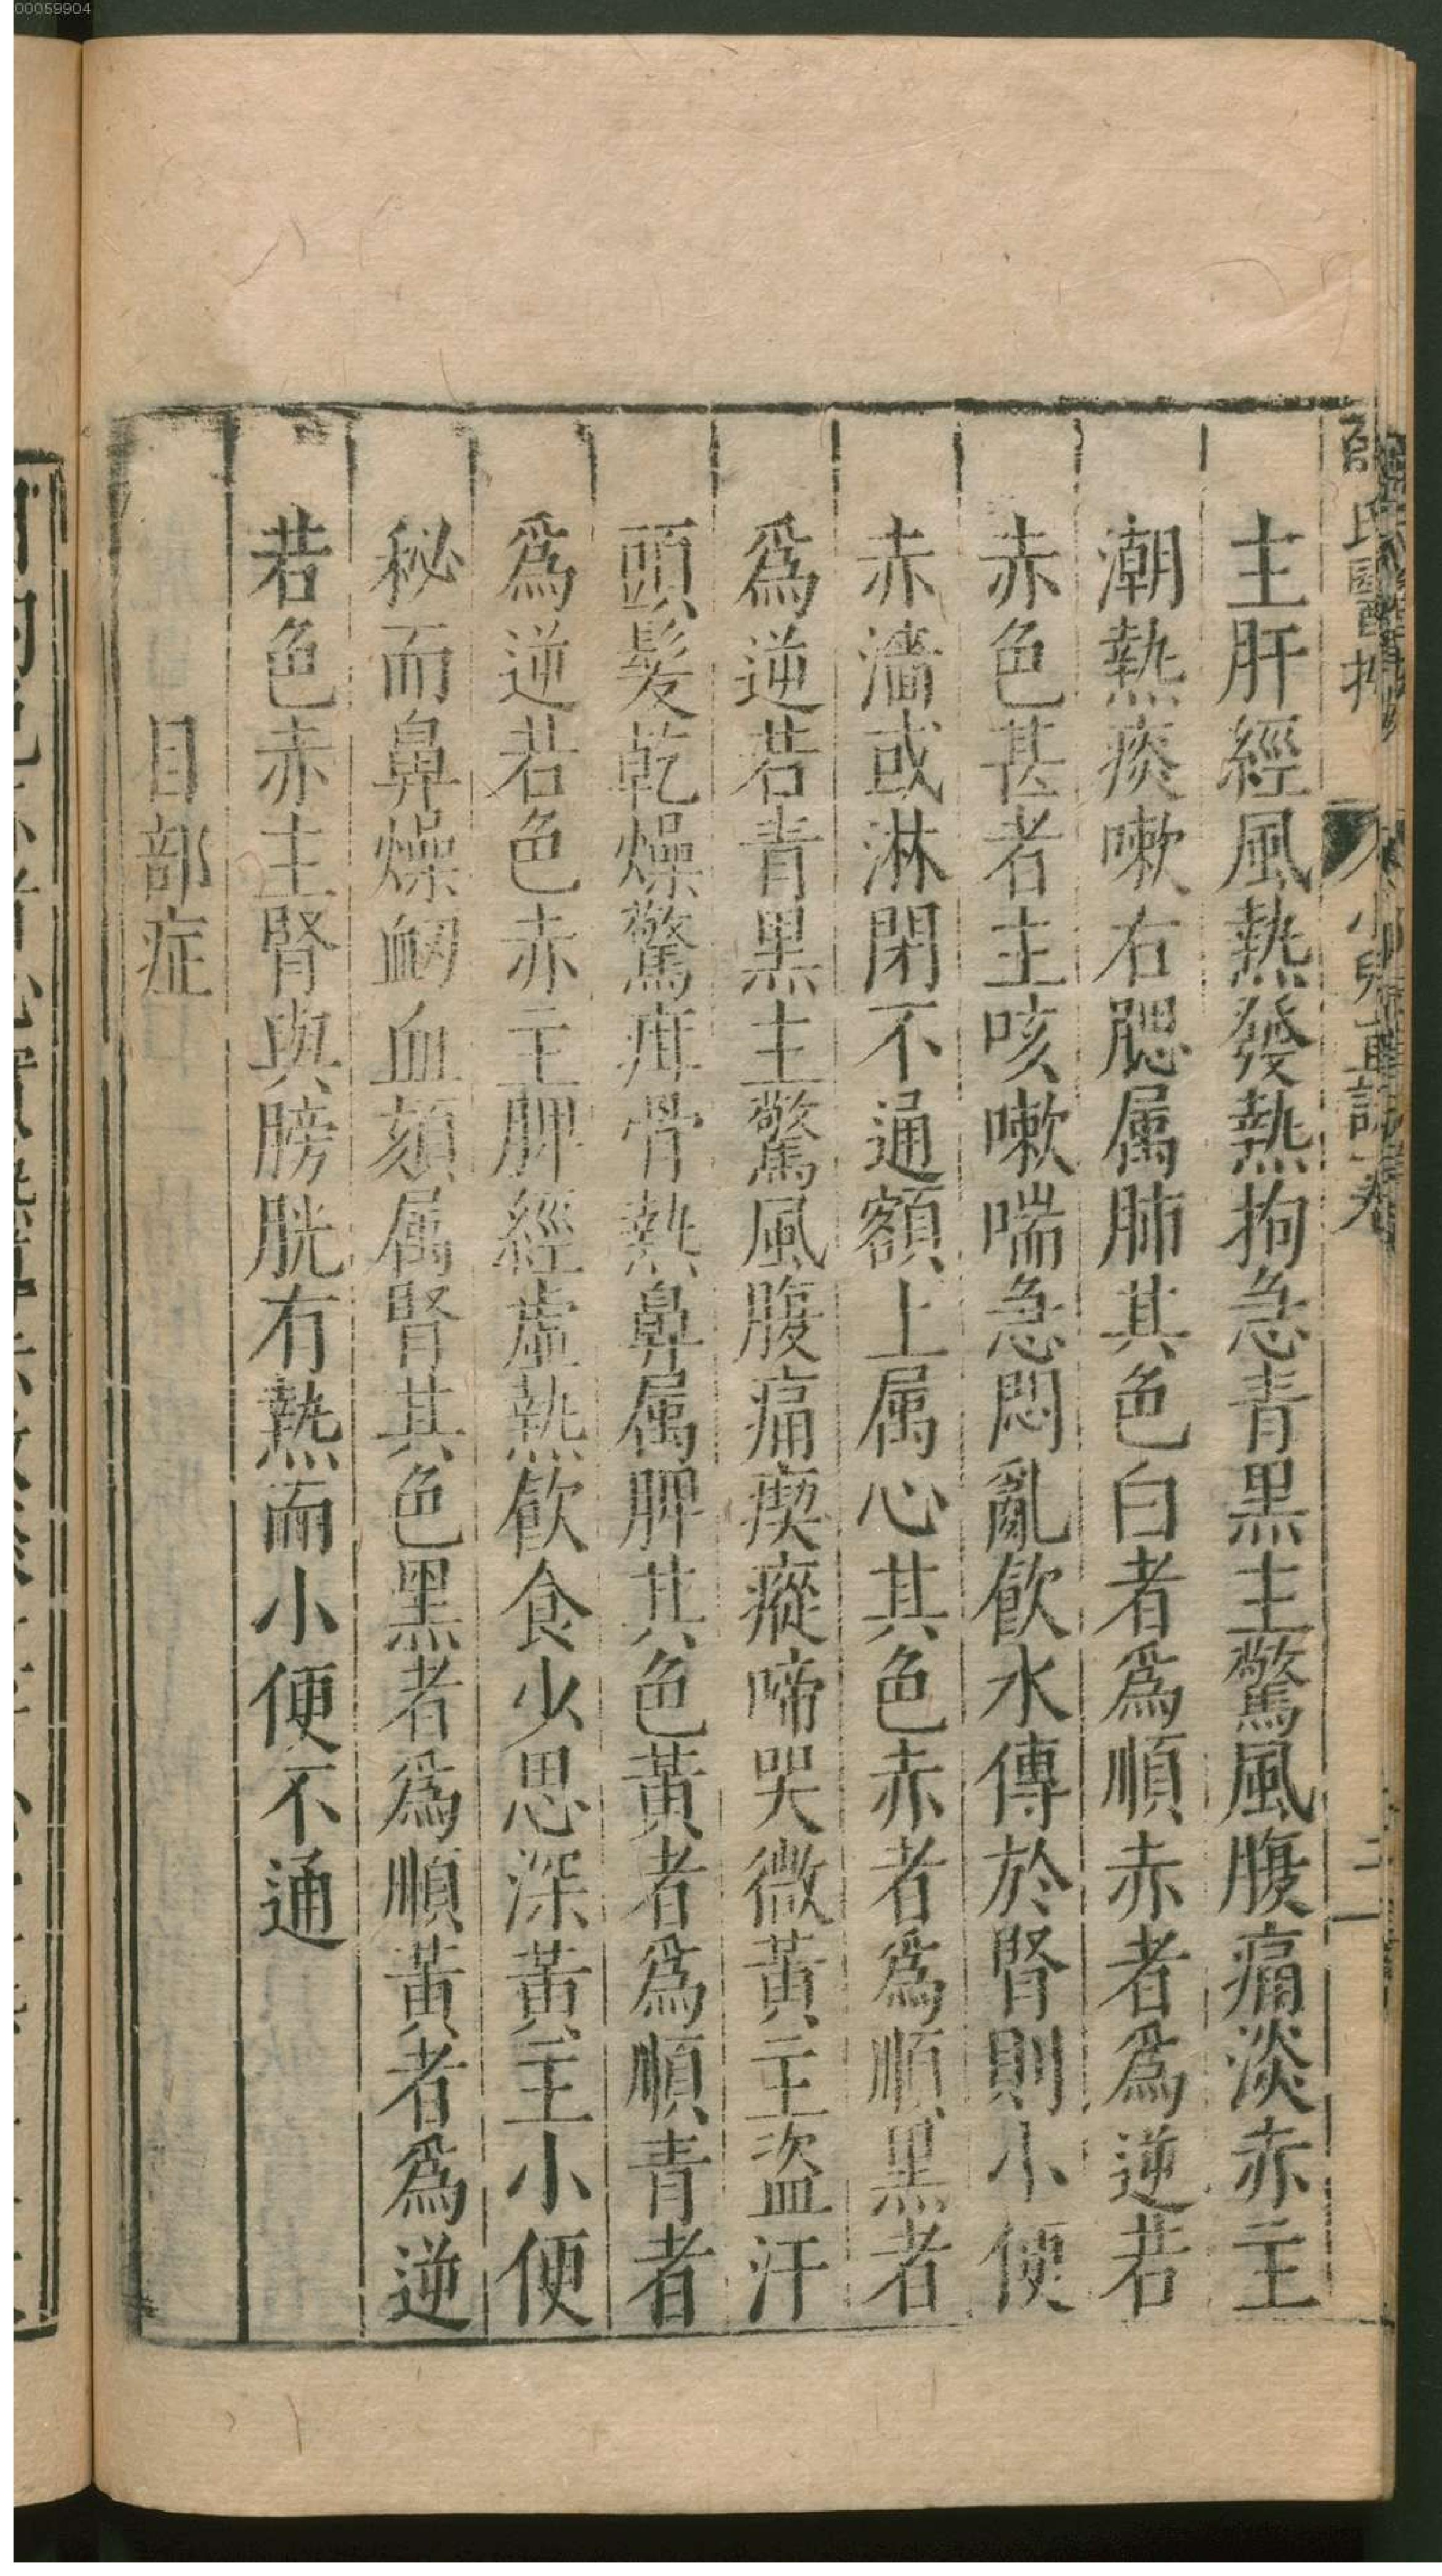 00059904
主肝經風熱發熱拘急青黑主驚風腹痛淡赤主
潮熱痰嗽右腮属肺其色白者爲順赤者爲逆若
赤色甚者主咳嗽喘急悶亂飮水傳於腎則小便
赤濇或淋閉不通額上属心其色赤者爲順黑者
爲逆若青黑主驚風腹痛瘈瘲啼哭微黃主盜汗
頭髮乾燥驚疳骨熱鼻属脾其色黃者爲順青者
爲逆若色赤主脾經虛熱飮食少思深黃主小便
秘而鼻燥衂血頦属腎其色黑者爲順黃者爲逆
若色赤主腎與膀胱有熱而小便不通
目部症